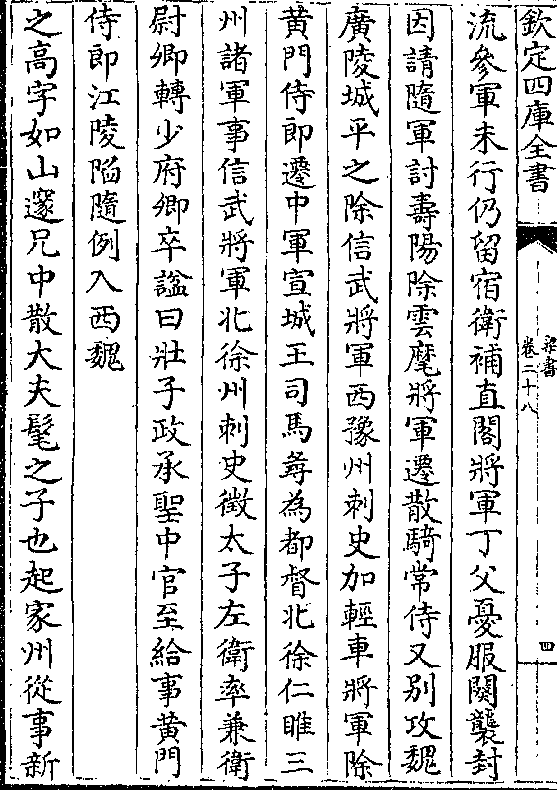 欽定四庫全書
梁書
卷二十八
四
流參軍未行仍留宿衛補直閣將軍丁父憂服闋襲封
因請隨軍討壽陽除雲麾將軍遷散騎常侍又别攻魏
廣陵城平之除信武將軍西豫州刺史加輕車將軍除
黄門侍郎遷中軍宣城王司馬尋為都督北徐仁睢三
州諸軍事信武將軍北徐州刺史徴太子左衛率兼衛
尉卿轉少府卿卒謚曰壯子政承聖中官至給事黄門
侍郎江陵陷隨例入西魏
之高字如山邃兄中散大夫髦之子也起家州從事新